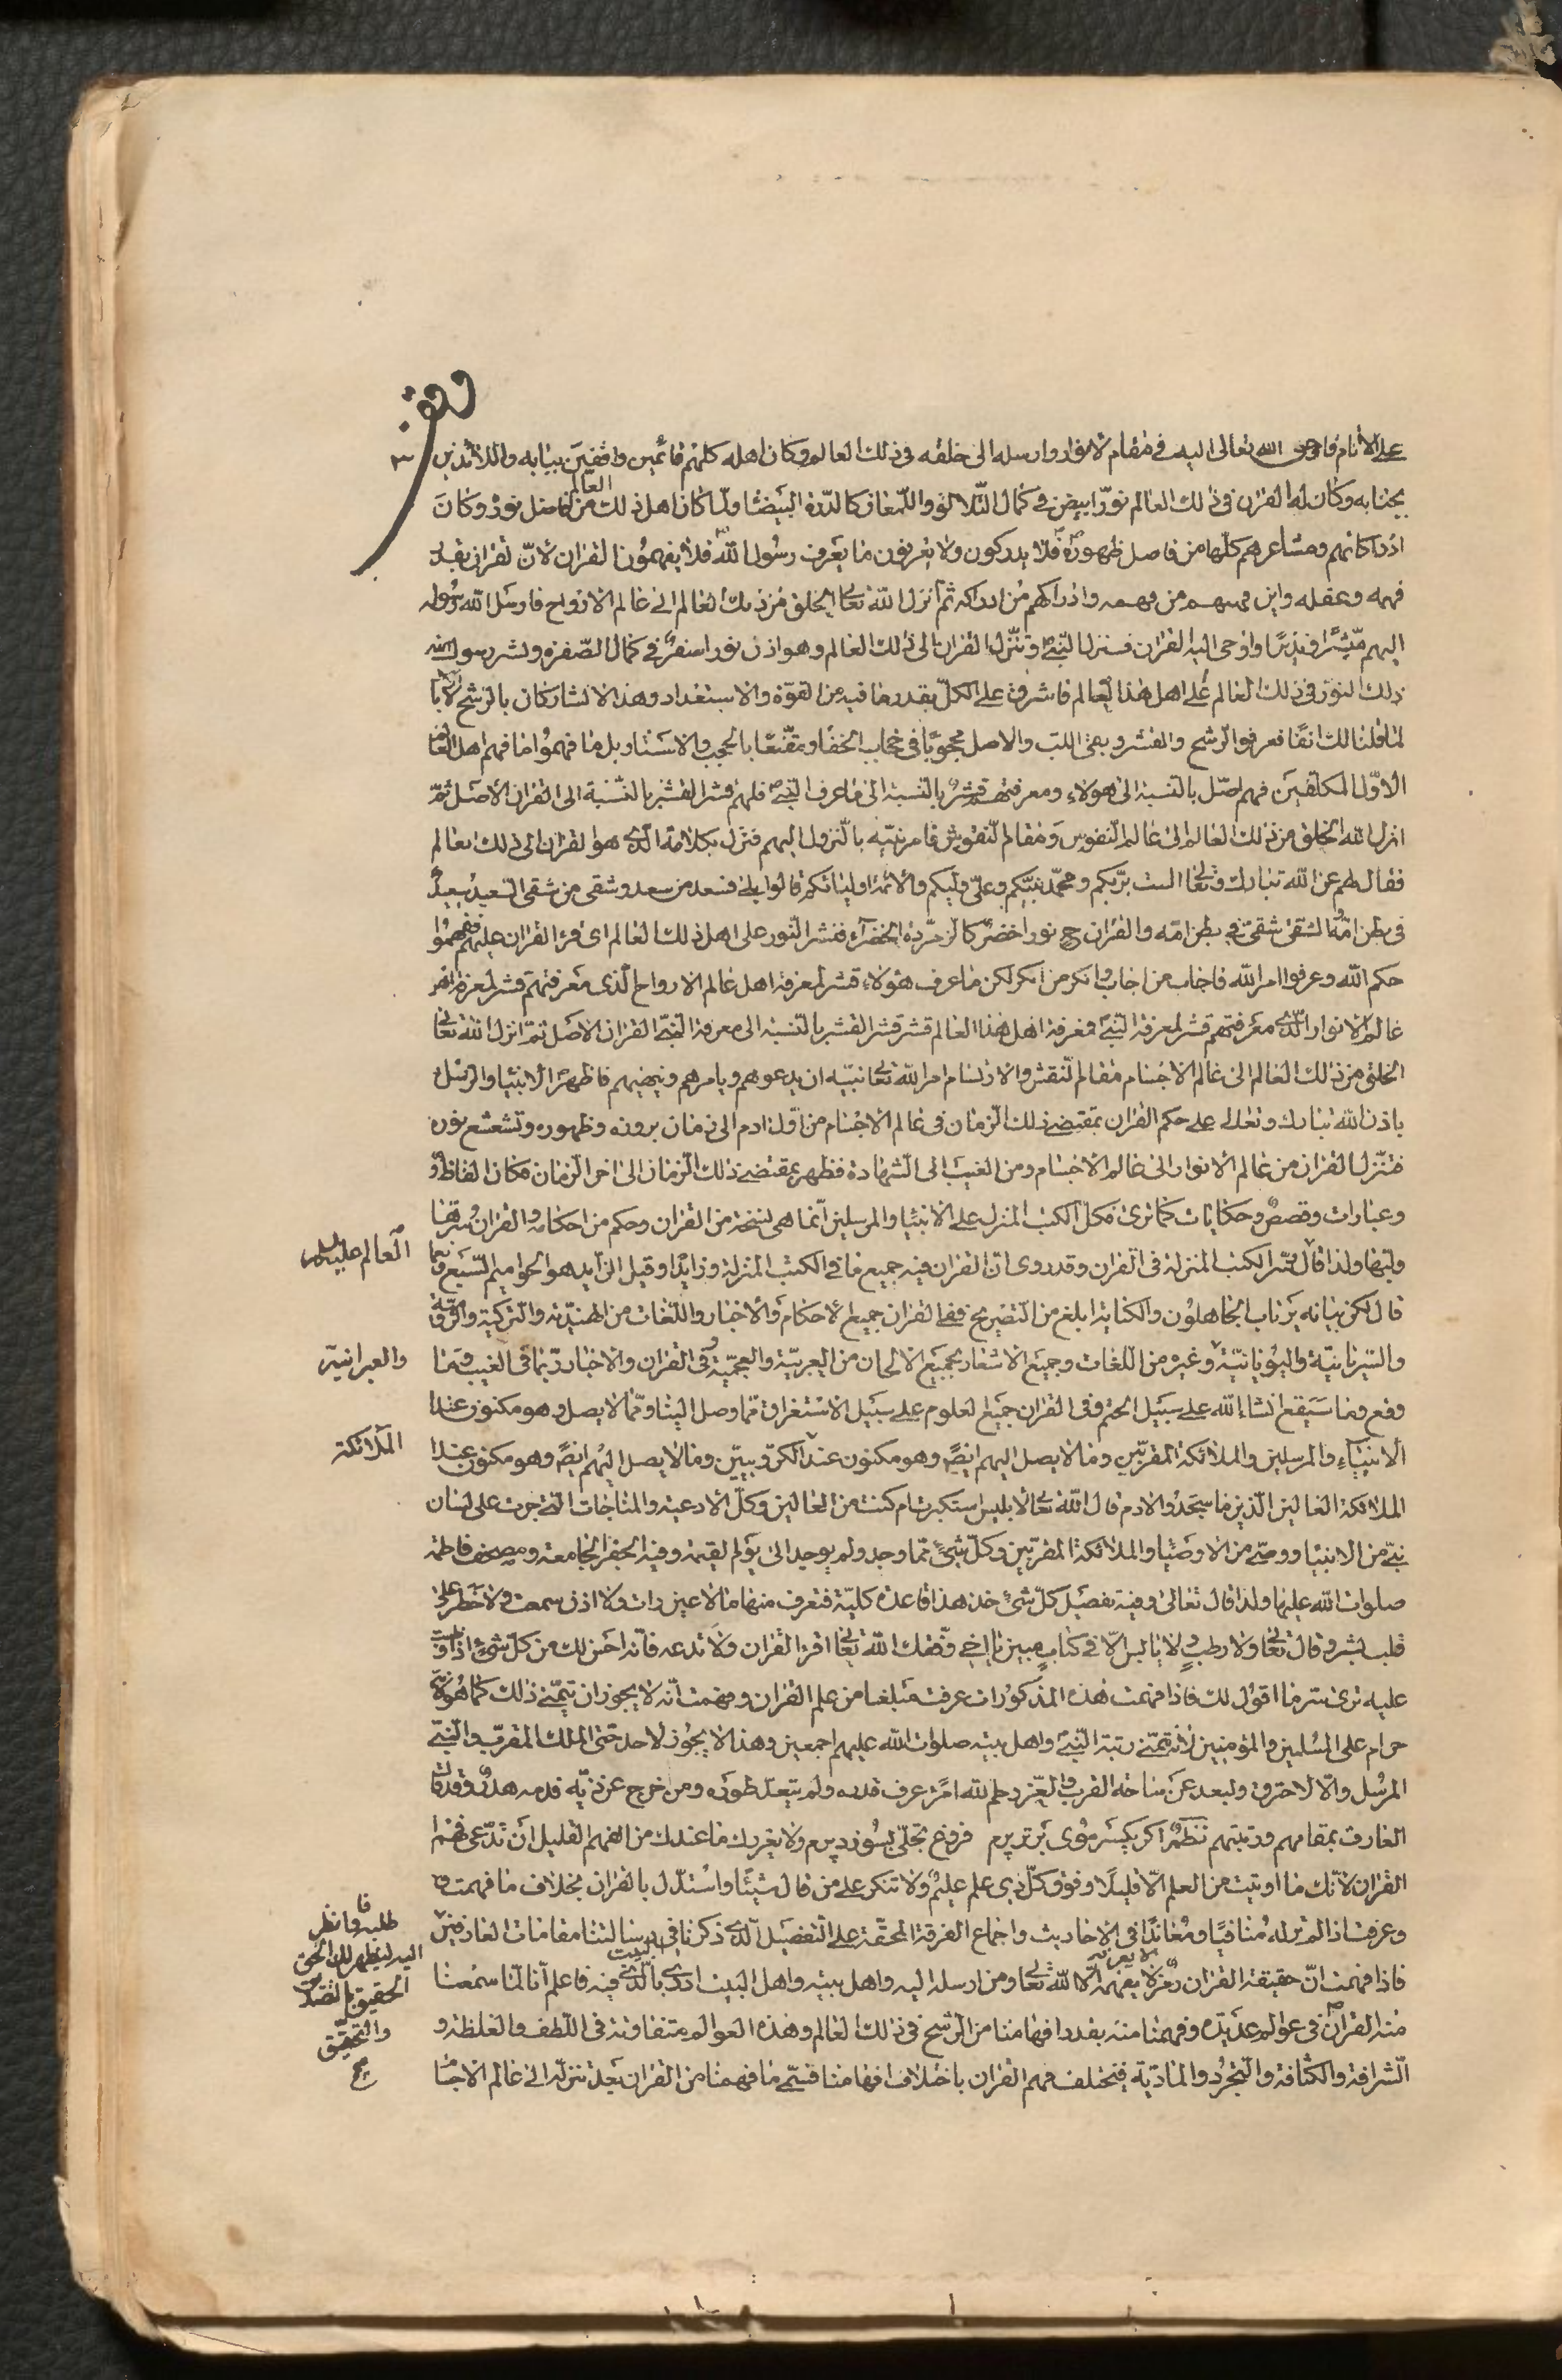 على الانام فاوحى الله تعالى اليه في مقام الانوار وارسله الى خلقه في ذلك العالم وكان اهله كلهم قائمين واقفين ببابه واللائذين
بجنابه وكان له القران في ذلك العالم نورا ابيض في كمال التلالؤ واللمعان كالدرة البيضا ولما كان اهل ذلك العالم من فاضل نوره وكان
ادراكاتهم ومشاعرهم كلها من فاضل ظهوره فلا يدركون ولا يعرفون ما يعرف رسول الله فلا يفهمون القران لان القران بقدر
فهمه وعقله واين فهمهم من فهمه وادراكهم من ادراكه ثم انزل الله تعالى الخلق من ذلك العالم الى عالم الارواح فارسل الله رسوله
اليهم مبشرا ونذيرا واوحى اليه القران فنزل النبي وتنزل القران الى ذلك العالم وهو اذن نور اصفر في كمال الصفرة ونشر رسول الله
ذلك النور في ذلك العالم على اهل هذا العالم فاشرق على الكل بقدر ما فيه من القوة والاستعداد وهذا الانتشار كان بالرشح لا
لما قلنا لك انفا فعرفوا الرشح والقشر وبقى اللب والاصل محجوبا في حجاب الخفا ومقنعا بالحجب والاستار بل ما فهموا ما فهم اهل العالم
الاول المكلفين فهم اصل بالنسبة الى هولاء ومعرفتهم قشر بالنسبة الى ما عرف النبي فلهم قشر القشر بالنسبة الى القران الاصل ثم
انزل الله الخلق من ذلك العالم الى عالم النفوس ومقام النقوش فامر نبيه بالنزول اليهم فنزل بكلامه الذي هو القران الى ذلك العالم
فقال لهم عن الله تبارك وتعالى الست بربكم ومحمد نبيكم وعلي وليكم والائمة اوليائكم قالوا بلى فسعد من سعد وشقى من شقى السعيد سعيد
في بطن امه الشقى شقى في بطن امه والقران ح نور اخضر كالزمردة الخضراء فنشر النور على اهل ذلك العالم اي قرا القران عليهم ففهموا
حكم الله وعرفوا امر الله فاجاب من اجاب وانكر من انكر لكن ما عرف هؤلاء قشر لمعرفة اهل عالم الارواح الذي معرفتهم قشر لمعرفة اهل
عالم الانوار الذي معرفتهم قشر لمعرفة النبي فمعرفة اهل هذا العالم قشر قشر القشر بالنسبة الى معرفة النبي القران الاصل ثم انزل الله تعالى
الخلق من ذلك العالم الى عالم الاجسام مقام النقش والارتسام امر الله تعالى نبيه ان يدعوهم ويامرهم وينهيهم فاظهر الانبيا والرسل
باذن الله تبارك وتعالى على حكم القران بمقتضى ذلك الزمان في عالم الاجسام من اول ادم الى زمان بروزه وظهوره وتشعشع نوره
فتنزل القران من عالم الانوار الى عالم الاجسام ومن الغيب الى الشهادة فظهر بمقتضى ذلك الزمان الى اخر الزمان فكان الفاظ
وعبارات وقصص وحكايات كما ترى فكل الكتب المنزلة على الانبيا والمرسلين انما هي نسخة من القران وحكم من احكامه والقران سرها
ولبها ولذا قال العالم عليه السلم سر الكتب المنزلة في القران وقد روى ان القران فيه جميع ما في الكتب المنزلة وزايدا وقيل الزايد هو الحواميم السبع
قال لكن بيانه يرتاب الجاهلون والكناية ابلغ من التصريح ففي القران جميع الاحكام والاخبار واللغات من الهندية والتركية
والسريانية واليونانية والعبرانية وغيره من اللغات وجميع الاشعار بجميع الالحان من العربية والعجمية وفي القران والاخبار بما في الغيب وبما
وقع وما سيقع انشاء الله على سبيل الحتم وفي القران جميع العلوم على سبيل الاستغراق مما وصل الينا ومما لا يصل وهو مكنون عند
الانبياء والمرسلين والملائكة المقربين وما لا يصل اليهم ايضا وهو مكنون عند الملائكة الكروبيين وما لا يصل اليهم ايضا وهو مكنون عند
الملائكة العالين الذين ما سجدوا لادم قال الله تعالى لابليس استكبرت ام كنت من العالين وكل الادعية والمناجات التي جرت على لسان
نبي من الانبيا ووصي من الاوصيا والملائكة المقربين وكل شيئ مما وجد ولم يوجد الى يوم القيمة وفيه الجفر الجامعة ومصحف فاطمة
صلوات الله عليها ولذا قال تعالى وفيه تفصيل كل شئ خذ هذا قاعدة كلية فتعرف منها ما لا عين رات ولا اذن سمعت ولا خطر على
قلب بشر وقال تعالى ولا رطب ولا يابس الا في كتاب مبين يا اخي وفقك الله تعالى اقرا القران ولا تدعه فانه احسن لك من كل شئ واذا
عليه ترى سر ما اقول لك فاذا فهمت هذه المذكورات عرفت مبلغا من علم القران وفهمت انه لا يجوز ان يتمنى ذلك كما هو
حرام على المسلمين والمؤمنين لانه تمنى رتبة النبي واهل بيته صلوات الله عليهم اجمعين وهذا لا يجوز لاحد حتى الملك المقرب والنبي
المرسل والا لاحترق ولبعد عن ساحة القرب والعز رحم الله امرء عرف قدره ولم يتعد طوره ومن خرج عن زيه فدمه هدر وقد قال
العارف بمقامهم ورتبتهم نظم اكر يكسر موى برتر پرم فروغ تجلى بسوزد پرم ولا يغررك ما عندك من الفهم القليل ان تدعى فهم
القران لانك ما اوتيت من العلم الا قليلا وفوق كل ذي علم عليم ولا تنكر على من قال شيئا واستدل بالقران بخلاف ما فهمت
وعرفت اذا لم تر له منافيا ومعاندا في الاخاديث واجماع الفرقة المحقة على التفصيل الذي ذكرنا في رسالتنا مقامات العارفين
فاطلبه وانظر اليه ليظهر لك الحق الحقيق بالتصديق والتحقيق
فاذا فهمت ان حقيقة القران لا يفهمه الا الله تعالى ومن ارسله اليه واهل بيته واهل البيت ادرى بالذي في البيت فاعلم اننا لما سمعنا
هذا القران في عوالم عديدة وفهمنا منه بقدر افهامنا من الرشح في ذلك العالم وهذه العوالم متفاوتة في اللطف والغلظة و
الشرافة والكثافة والتجرد والمادية فيختلف فهم القران باختلاف افهامنا فسمى ما فهمنا من القران بعد تنزله الى عالم الاجسام